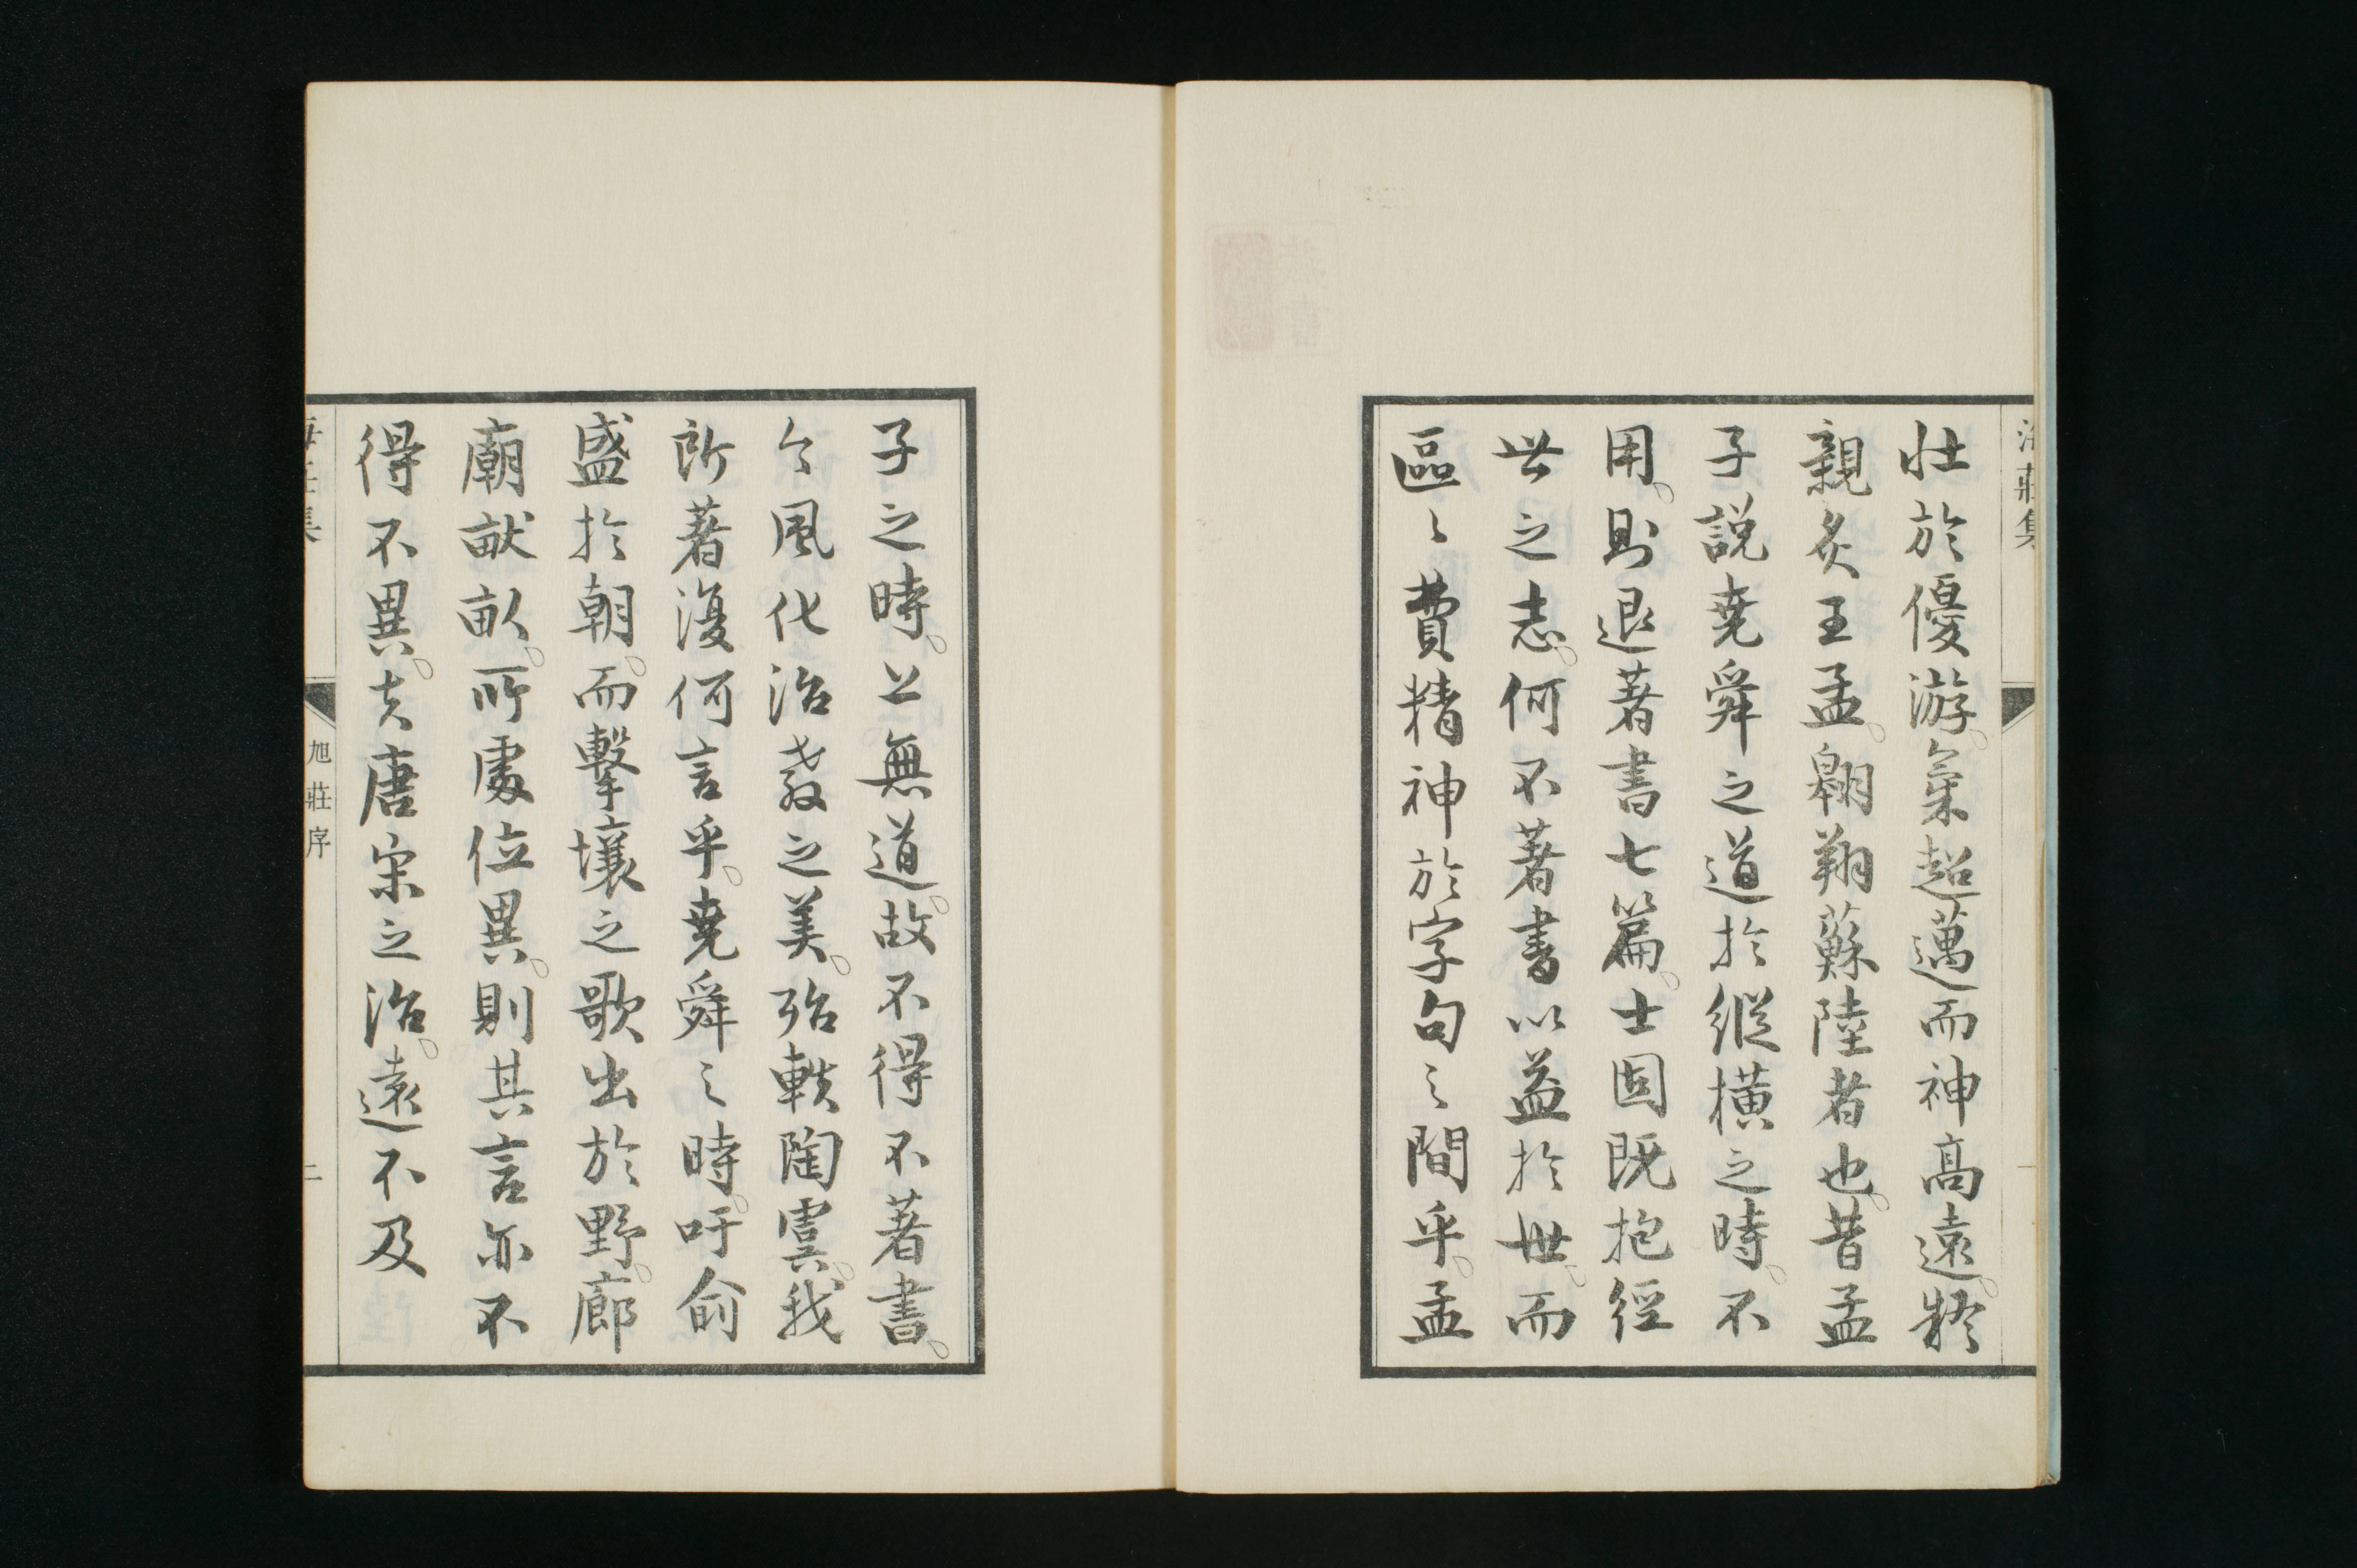 壯於優游。氣超邁而神高遠。將
親炙王孟。翱翔蘇陸者也。昔孟
子説堯舜之道於縱橫之時。不
用。則退著書七篇。士固既抱經
世之志。何不著書以益於世。而
區〻費精神於字句之間乎。孟
子之時。上無道。故不得不著書。
今風化治教之美。殆軼陶虞。我
所著復何言乎。堯舜之時。吁俞
盛於朝。而擊壤之歌出於野。廊
廟畎畝。所處位異。則其言亦不
得不異。夫唐宋之治。遠不及
集
旭莊序
二